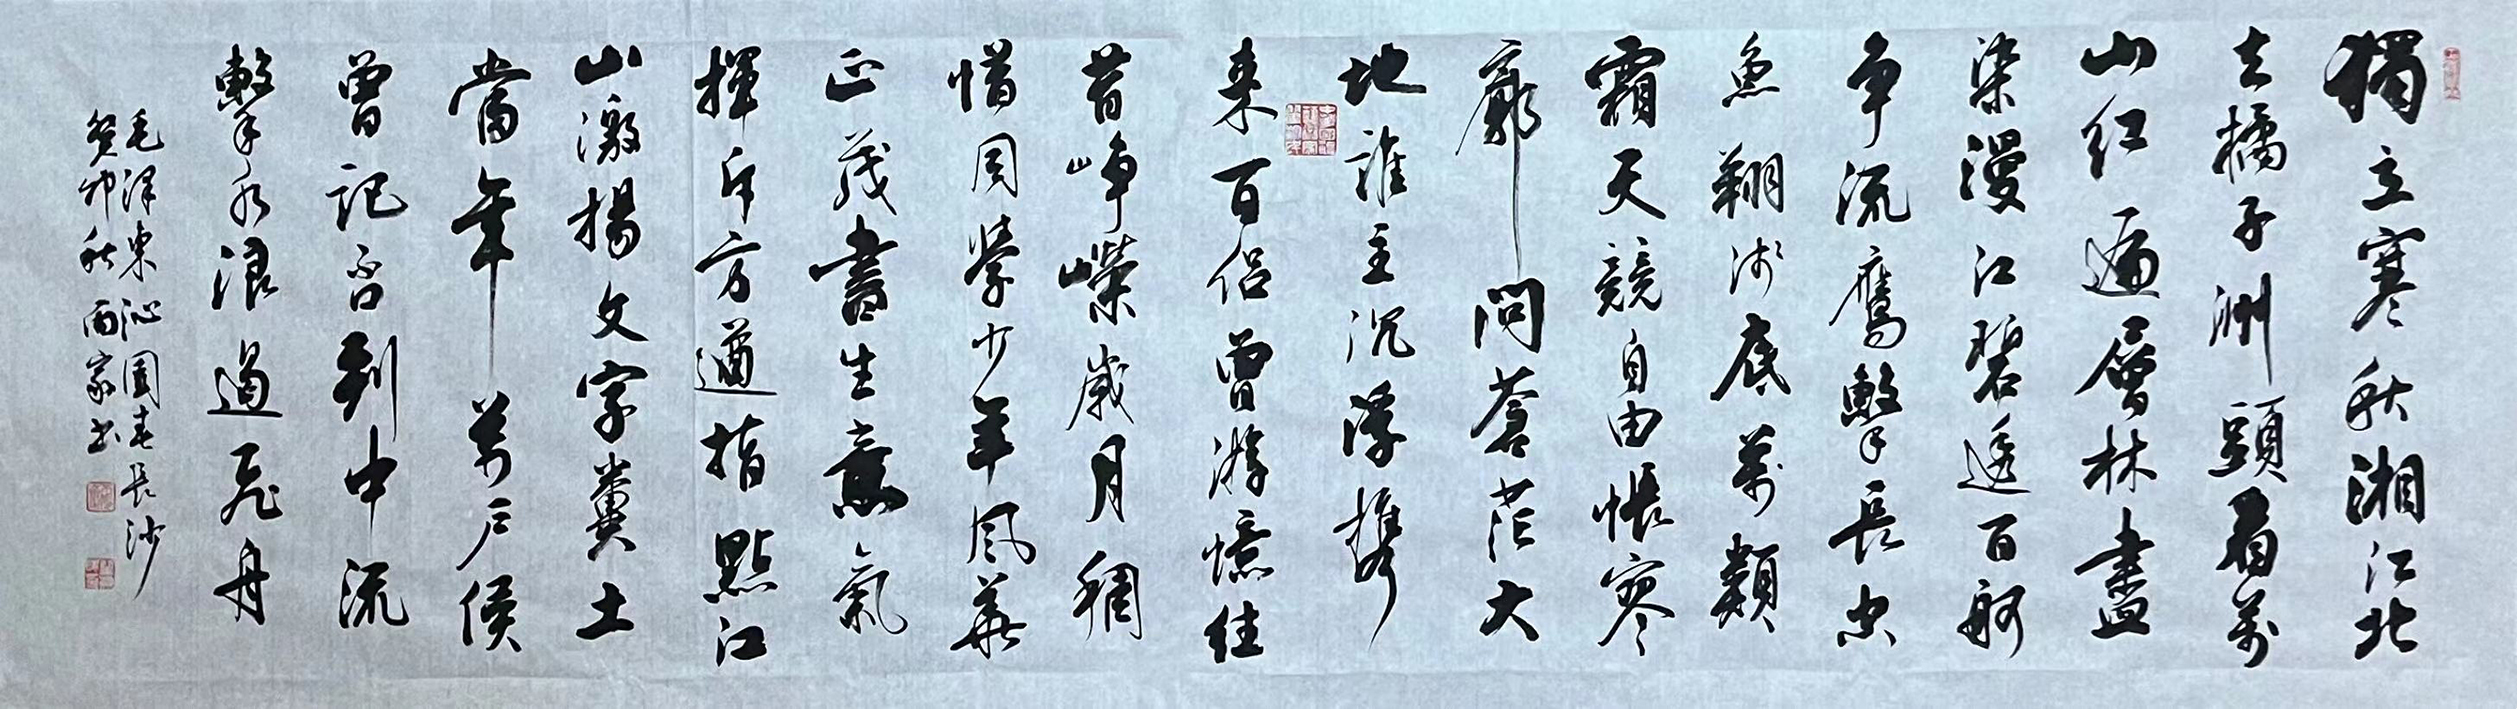 獨立寒秋湘江北
去橘子洲頭看萬
山红遍層林盡
染漫江碧透百舸
争流鷹擊長空
魚翔浅底萬類
霜天競自由悵寥
廓問蒼茫大
地誰主沉浮携
来百侣曾游憶往
昔峥嵘歲月稠
惜同學少年風華
正茂書生意氣
揮斥方遒指點江
山激揚文字糞土
當年萬户侯
曾记否到中流
擊水浪遏飛舟
毛泽東沁園春長沙
癸卯秋雨家书